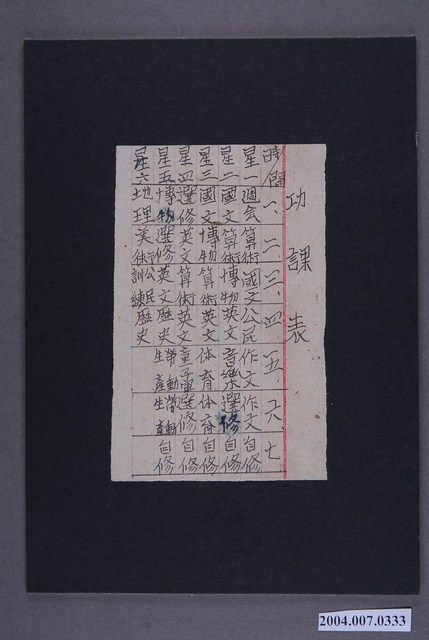 功課表
時間 一、二、三、四、五、六、七
星一 週会 算術 國文 公民 作文 作文 自修
星二 國文 算術 博物 英文 音樂 選修 自修
星三 國文 博物 算術 英文 体育 体育 自修
星四 選修 英文 算術 英文 童子軍 選修 自修
星五 博物 選修 英文 歷史 勞動生產 勞動生產 自修
星六 地理 美術 公民訓練 歷史
2004.007.0333